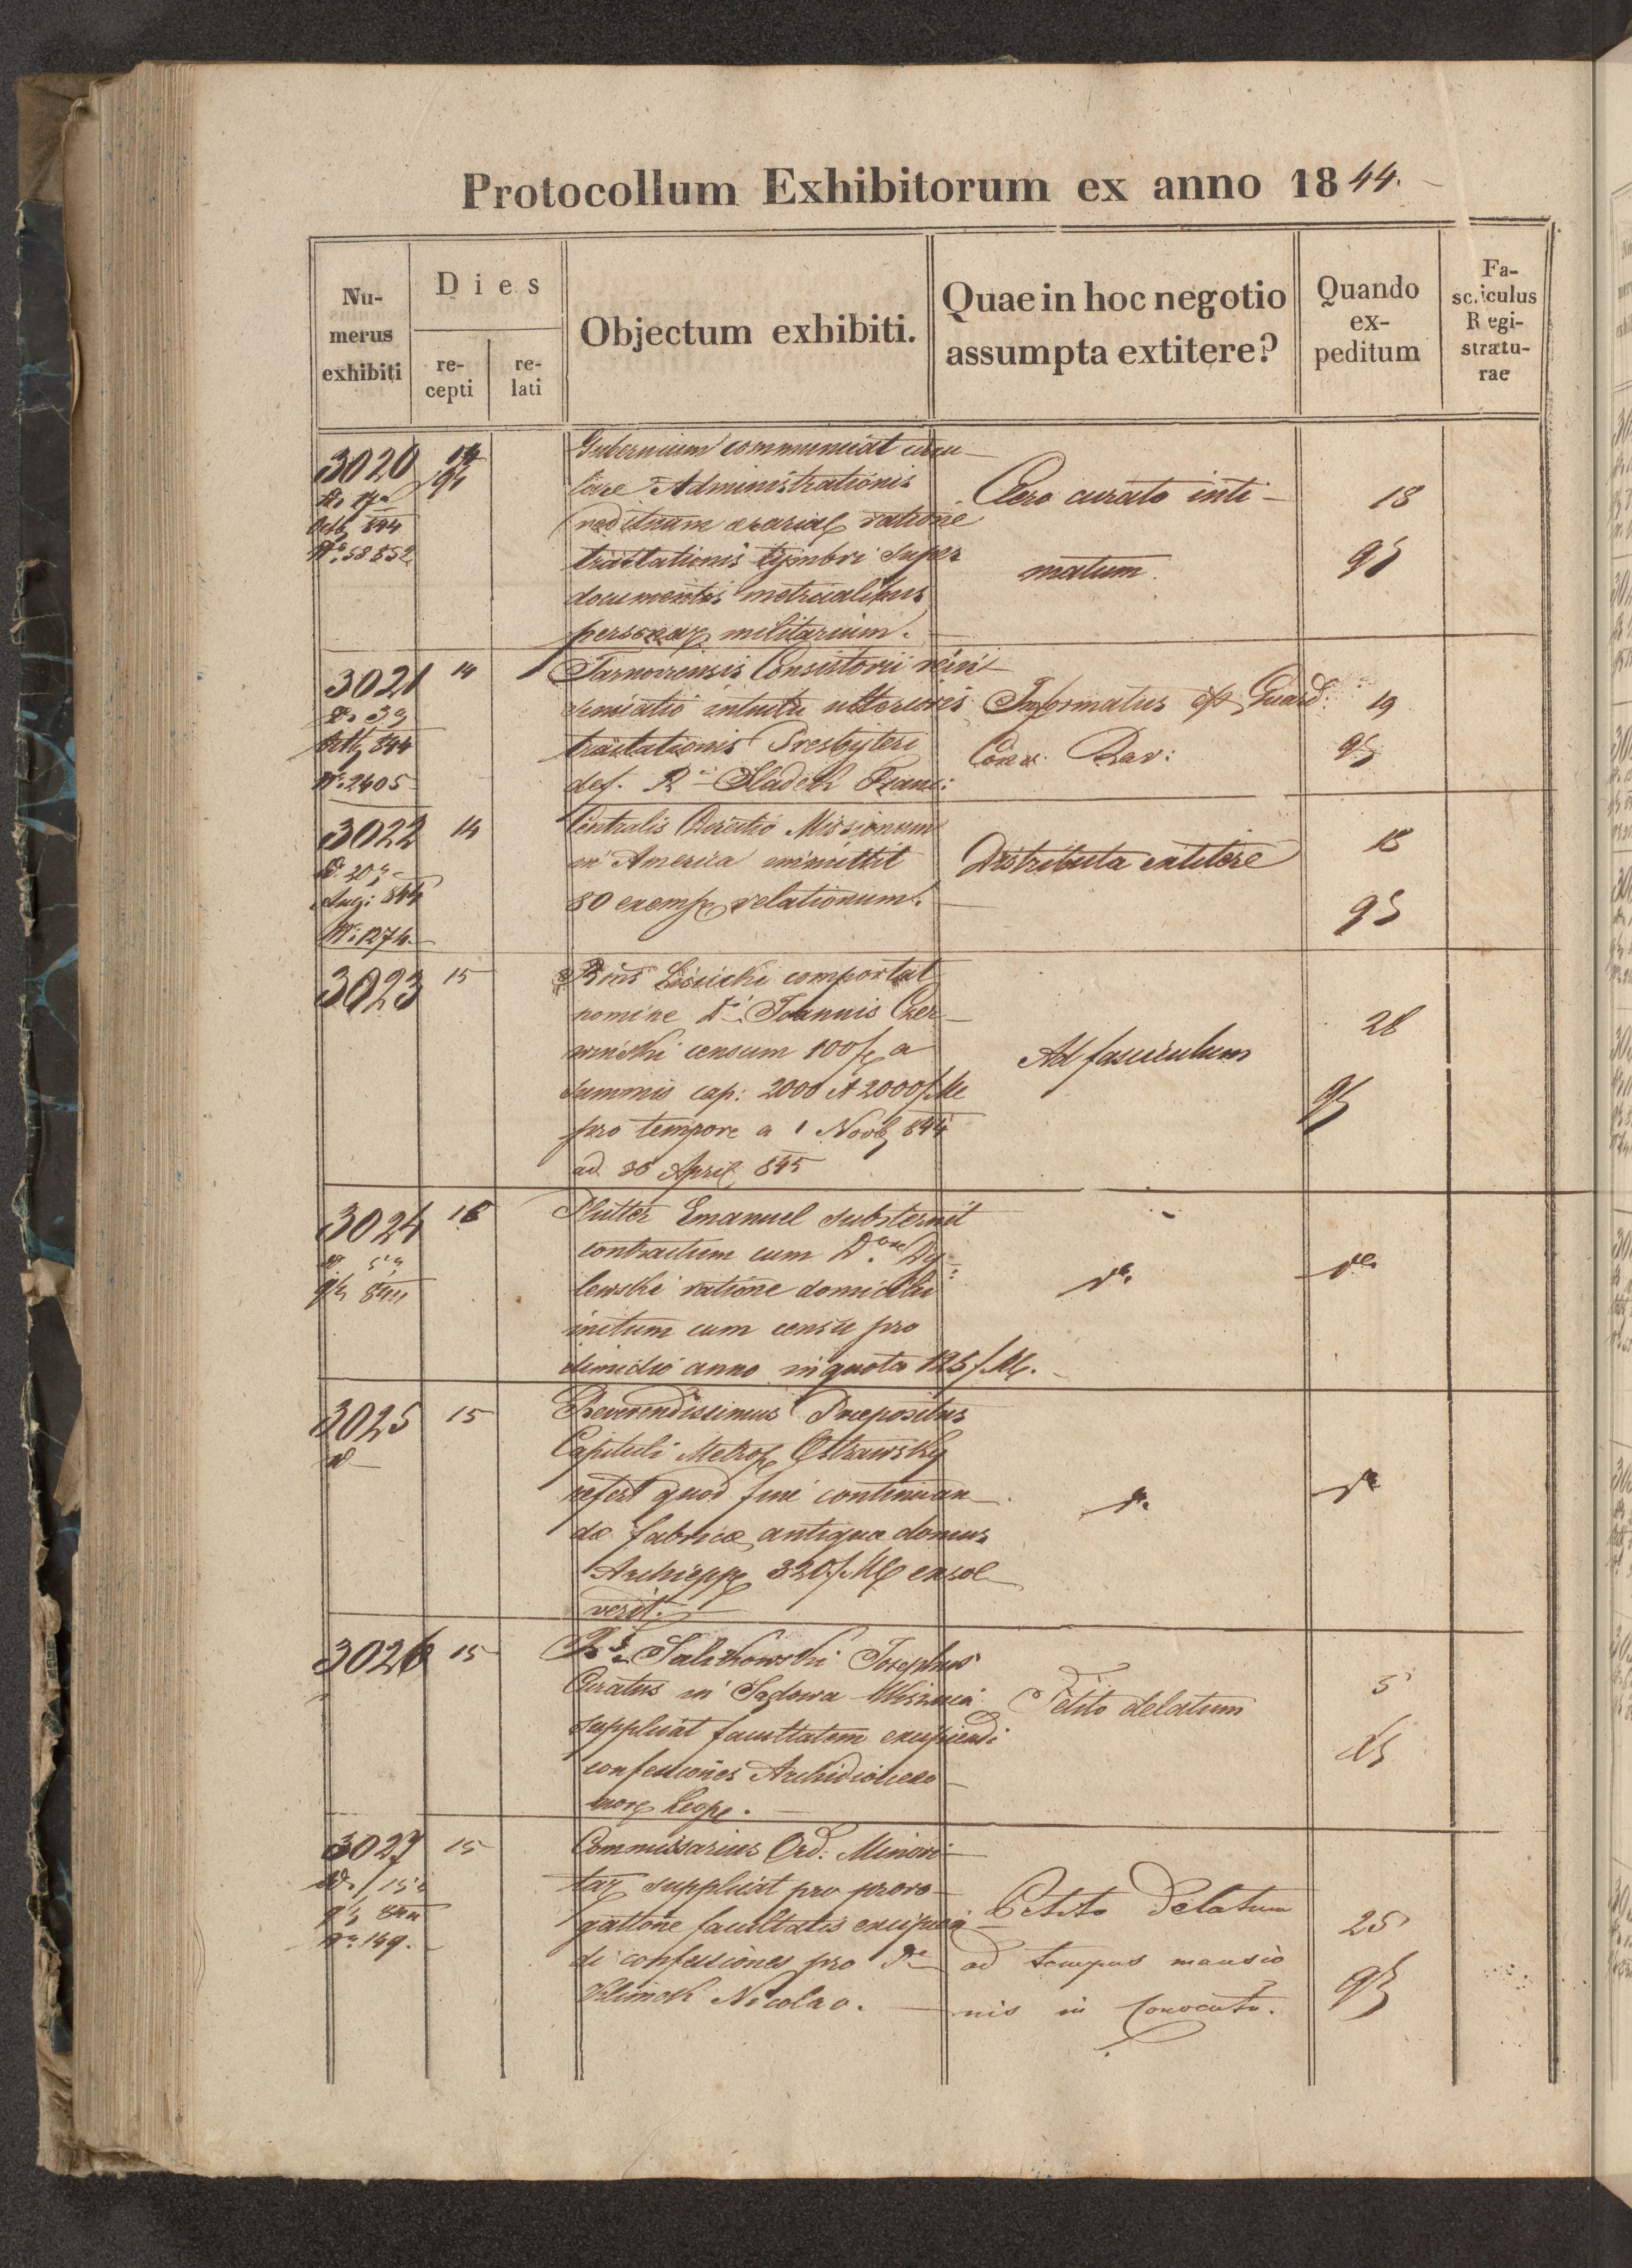 Protocollum Exhibitorum ex anno 1844.
Nu-
merus
exhibiti
Dies
re-
cepti
re-
lati
Objectum exhibiti.
Quae in hoc negotio
assumpta extitere?
Quando
ex-
peditum
Fa-
sciculus
Regi-
stratu-
rae
3020
14
Octb 844
No 58852
Gubernium communicat circu-
lare Administrationis
redituum aerarial ratione
tractationis tymbri super
documentis metricalibus
personar militarium.
Clero curato inti-
matum.
18
9b
3021
14
Octb 844
No. 2405
Tarnoviensis Consistorii
intuitu ulterioris
tractationis Presbyteri
def. Rdi Sladek Franc:
Informatus est Guard:
Rav:
19
9b
3022
14
D. 20
Aug: 844
No: 1274.
Centralis Directio Missionum
in America immittit
80 exemp relationum.
Distributa extitere
18
9b
3023
15
comportat
nomine Di Joannis Czer-
wiński censum 100 f a
summis cap: 2000 et 2000 f Me
pro tempore a 1 Novb 844
ad 30 April 845
Ad fasciculum
28
9b
3024
15
9b 844
Plutter Emanuel substernit
contractum cum Dno Dy-
lewski ratione domicilii
initum cum censu pro
dimidio anno in quota 125 f M.
do
do
3025
15
Reverendissimus Praepositus
Capituli Metrop Ostrawski
refert quod fine continuan-
dae fabricae antiquae domus
Archiepp 320 f M exsol-
verit.
do
do
3026
15
Josephus
Curatus in Sądowa Wisznia
supplicat facultatem excipiendi
confessiones Archidioeceso-
norg Leop.
Petito delatum
5
3027
15
D. 15
9b 844
No 149.
Commissarius Ord. Minori-
tar supplicat pro proro-
gatione facultatis excipien-
di confessiones pro Rdo
Klimek Nicolao.
Petito delatum
ad tempus mansio-
nis in Conventu.
25
9b